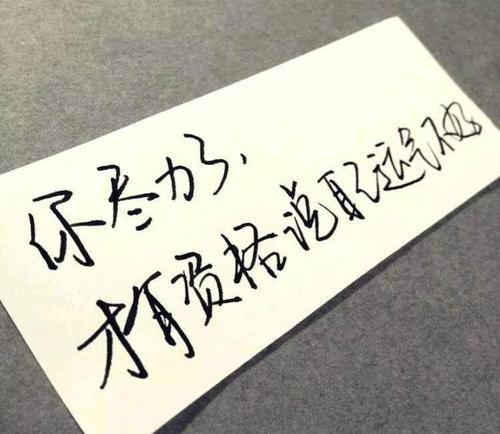 你尽力了，
才有资格说自己运气不好